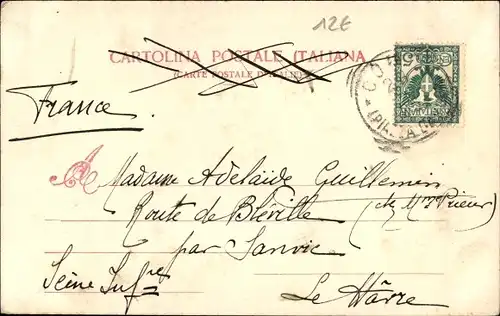 12E
CARTOLINA POSTALE ITALIANA
(CARTE POSTALE D'ITALIE)
France
A Madame Adelaide Guillemin
(chez Mme Prieur)
Route de Bléville
par Sanvic
Seine Infre
Le Hâvre